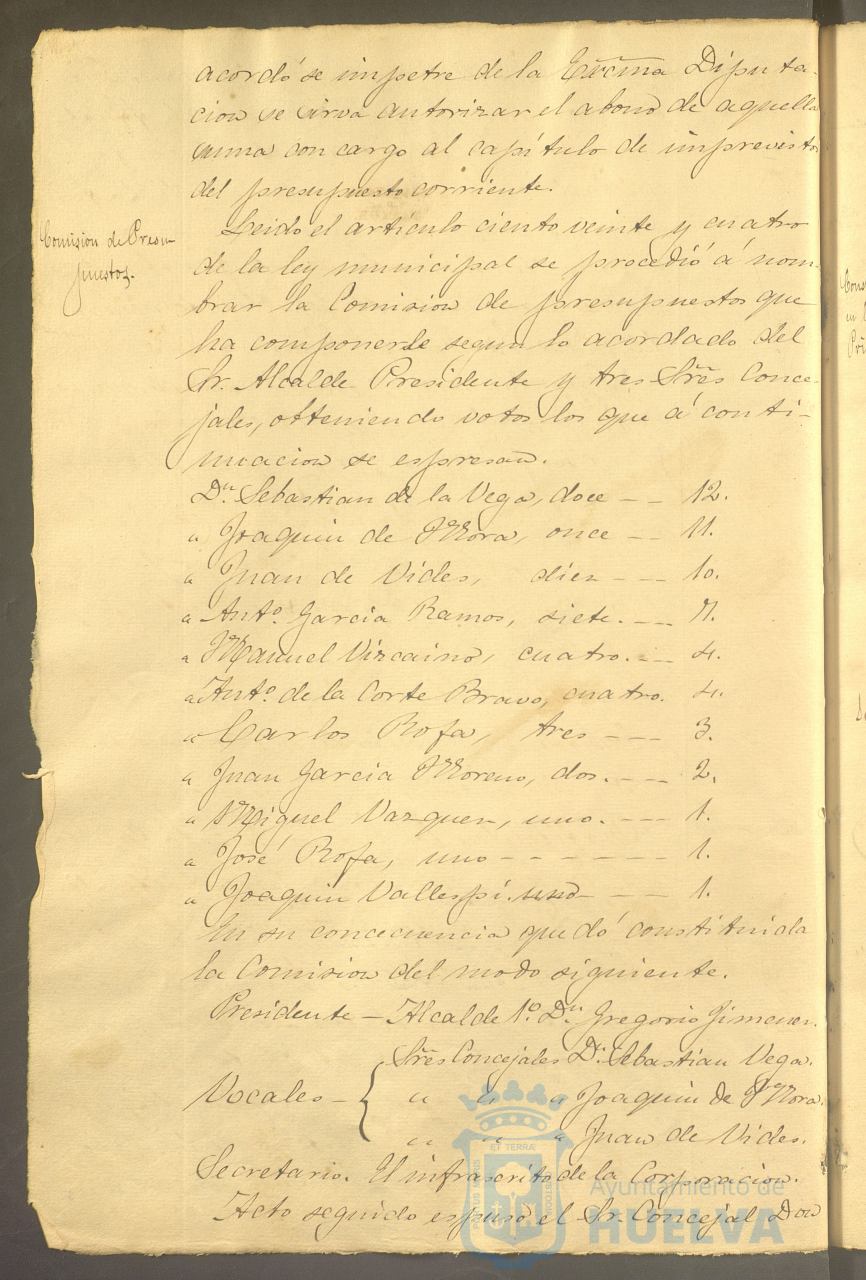 acordó se impetre de la Excma Diputa-
cion se sirva autorizar el abono de aquella
suma con cargo al capítulo de imprevistos
del presupuesto corriente.
Comision de Presu-
puestos.
Leido el artículo ciento veinte y cuatro
de la ley municipal se procedió á nom-
brar la Comision de presupuestos que
ha componerse segun lo acordado del
Sr. Alcalde Presidente y tres Sres Conce-
jales, obteniendo votos los que á conti-
nuacion se espresan.
Dn. Sebastian de la Vega, doce -- 12.
" Joaquin de Mora, once -- 11.
" Juan de Vides, diez --- 10.
" Anto. Garcia Ramos, siete. --- 7.
" Manuel Vizcaino, cuatro. --- 4.
" Anto. de la Corte Bravo, cuatro. 4.
" Carlos Rofa, tres --- 3.
" Juan Garcia Moreno, dos. --- 2.
" Miguel Vazquez, uno. --- 1.
" José Rofa, uno ------ 1.
" Joaquin Vallespí. uno --- 1.
En su concecuencia quedó constituida
la Comision del modo siguiente.
Presidente - Alcalde 1º. Dn. Gregorio Jimenez.
Sres Concejales Dn. Sebastian Vega.
Vocales - { " " " Joaquin de Mora.
" " " Juan de Vides.
Secretario. El infrascrito de la Corporacion.
Acto seguido espuso el Sr. Concejal Don
Ayuntamiento de
HUELVA